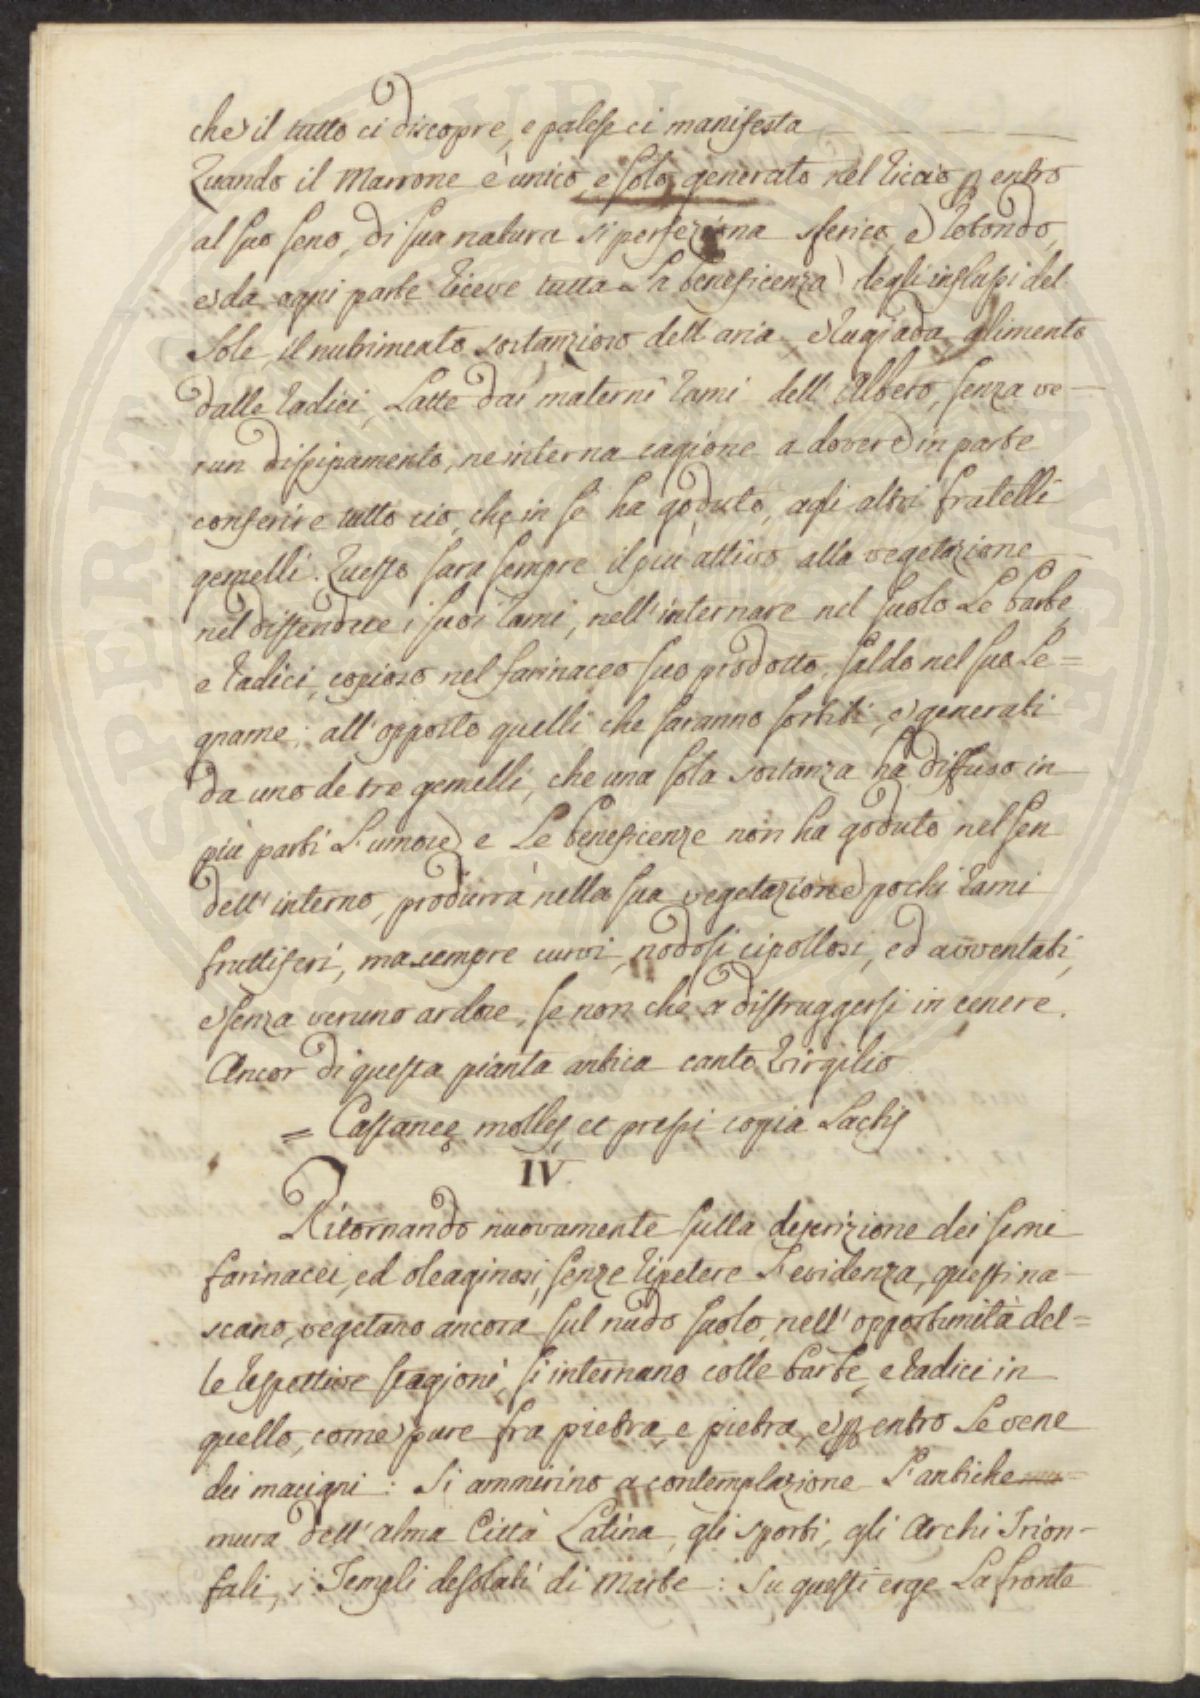 che il tutto ci discopre, e palese ci manifesta
Quando il Marrone è unico, e solo generato nel riccio per entro
al suo seno, di sua natura si perfeziona sferico, e rotondo,
e da ogni parte riceve tutta la beneficenza degli influssi del
Sole, il nutrimento sostanzioso dell'aria e rugiada, alimento
dalle radici, Latte dai materni rami dell'Albero, senza ve-
run dissipamento, ne interna cagione a dovere in parte
conferire tutto ciò, che in se ha goduto, agli altri fratelli
gemelli. Questo sara sempre il più attivo alla vegetazione
nel distendere i suoi rami, nell'internare nel suolo Le barbe,
e radici, copioso nel farinaceo suo prodotto, saldo nel suo Le=
gname: all'opposto quelli che saranno sortiti, e generati
da uno de tre gemelli, che una sola sostanza ha diffuso in
più parti L'umore, e Le beneficenze non ha goduto nel sen
dell'interno, produrrà nella sua vegetazione pochi rami
fruttiferi, ma sempre curvi, nodosi cipollosi, ed avventati,
e senza veruno ardore, se non che a distruggersi in cenere.
Ancor di questa pianta antica canto Virgilio
= Castaneę molles, et pressi copia Lactis
IV.
Ritornando nuovamente sulla descrizione dei semi
farinacei, ed oleaginosi, senze ripetere L'evidenza, questi na-
scano, vegetano ancora sul nudo suolo, nell'opportunità del=
le respettive stagioni, si internano colle barbe, e radici in
quello, come pure fra pietra, e pietra, e per entro Le vene
dei macigni: Si ammirino a contemplazione L'antiche
mura dell'alma Città Latina, gli sporti, gli Archi Trion-
fali, i Templi desolati di Marte: Su questi erge La fronte